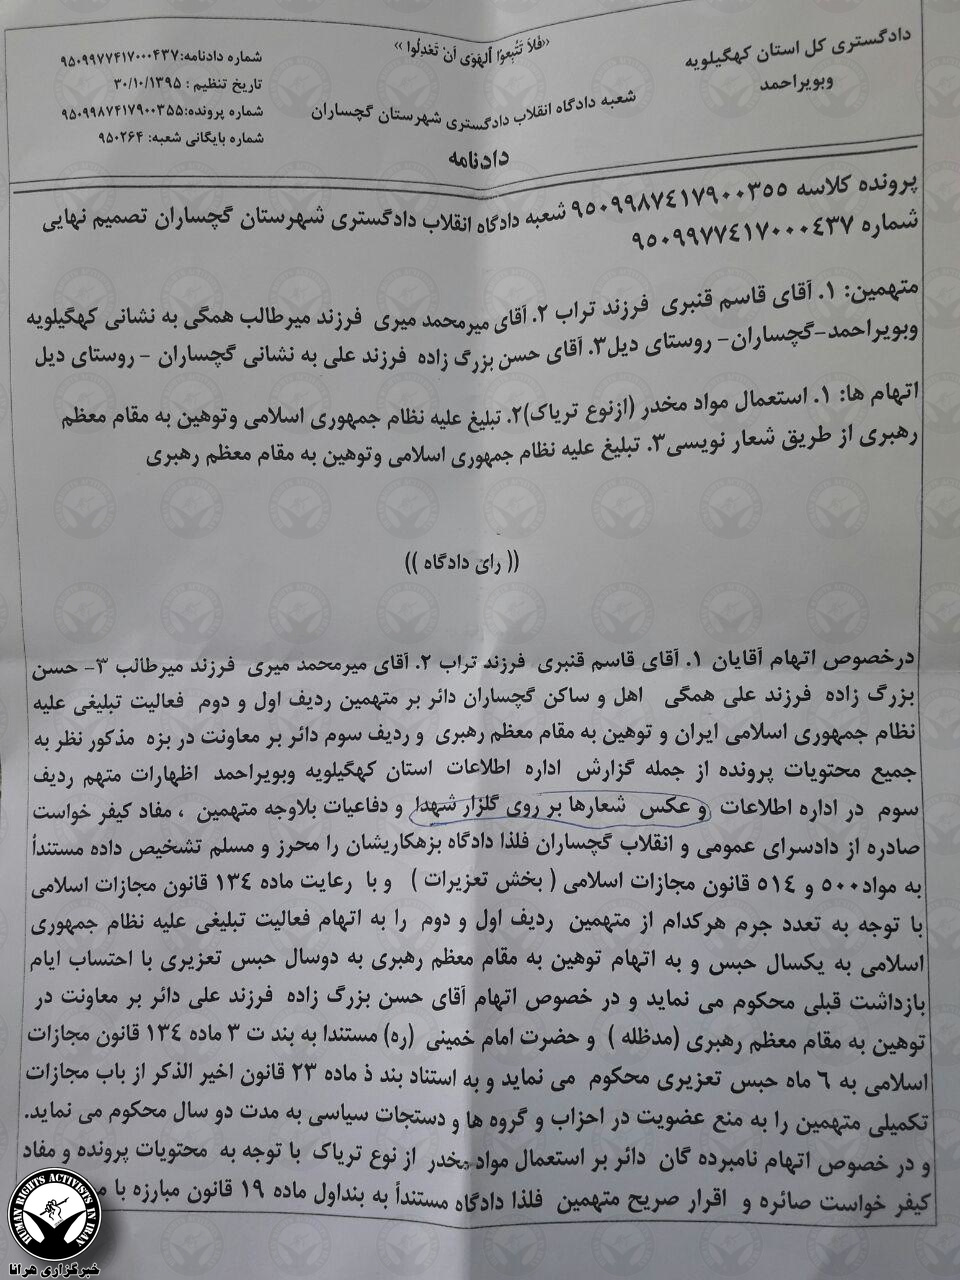 دادگستری کل استان کهگیلویه
وبویراحمد
«فَلاَ تَتَّبِعوُا الْهَوَی اَنْ تَعْدِلُوا »
شعبه دادگاه انقلاب دادگستری شهرستان گچساران
دادنامه
شماره دادنامه:۹۵۰۹۹۷۷۴۱۷۰۰۰۴۳۷
تاریخ تنظیم : ۳۰/۱۰/۱۳۹۵
شماره پرونده:۹۵۰۹۹۸۷۴۱۷۹۰۰۳۵۵
شماره بایگانی شعبه: ۹۵۰۲۶۴
پرونده کلاسه ۹۵۰۹۹۸۷۴۱۷۹۰۰۳۵۵ شعبه دادگاه انقلاب دادگستری شهرستان گچساران تصمیم نهایی
شماره ۹۵۰۹۹۷۷۴۱۷۰۰۰۴۳۷
متهمین: ۱. آقای قاسم قنبری فرزند تراب ۲. آقای میرمحمد میری فرزند میرطالب همگی به نشانی کهگیلویه
وبویراحمد-گچساران- روستای دیل۳. آقای حسن بزرگ زاده فرزند علی به نشانی گچساران - روستای دیل
اتهام ها: ۱. استعمال مواد مخدر (ازنوع تریاک)۲. تبلیغ علیه نظام جمهوری اسلامی وتوهین به مقام معظم
رهبری از طریق شعار نویسی۳. تبلیغ علیه نظام جمهوری اسلامی وتوهین به مقام معظم رهبری
(( رای دادگاه ))
درخصوص اتهام آقایان ۱. آقای قاسم قنبری فرزند تراب ۲. آقای میرمحمد میری فرزند میرطالب ۳- حسن
بزرگ زاده فرزند علی همگی اهل و ساکن گچساران دائر بر متهمین ردیف اول و دوم فعالیت تبلیغی علیه
نظام جمهوری اسلامی ایران و توهین به مقام معظم رهبری و ردیف سوم دائر بر معاونت در بزه مذکور نظر به
جمیع محتویات پرونده از جمله گزارش اداره اطلاعات استان کهگیلویه وبویراحمد اظهارات متهم ردیف
سوم در اداره اطلاعات و عکس شعارها بر روی گلزار شهدا و دفاعیات بلاوجه متهمین ، مفاد کیفر خواست
صادره از دادسرای عمومی و انقلاب گچساران فلذا دادگاه بزهکاریشان را محرز و مسلم تشخیص داده مستنداً
به مواد۵۰۰ و ۵۱۴ قانون مجازات اسلامی ( بخش تعزیرات ) و با رعایت ماده ۱۳۴ قانون مجازات اسلامی
با توجه به تعدد جرم هرکدام از متهمین ردیف اول و دوم را به اتهام فعالیت تبلیغی علیه نظام جمهوری
اسلامی به یکسال حبس و به اتهام توهین به مقام معظم رهبری به دوسال حبس تعزیری با احتساب ایام
بازداشت قبلی محکوم می نماید و در خصوص اتهام آقای حسن بزرگ زاده فرزند علی دائر بر معاونت در
توهین به مقام معظم رهبری (مدظله ) و حضرت امام خمینی (ره) مستندا به بند ت ۳ ماده ۱۳۴ قانون مجازات
اسلامی به ۶ ماه حبس تعزیری محکوم می نماید و به استناد بند ذ ماده ۲۳ قانون اخیر الذکر از باب مجازات
تکمیلی متهمین را به منع عضویت در احزاب و گروه ها و دستجات سیاسی به مدت دو سال محکوم می نماید.
و در خصوص اتهام نامبرده گان دائر بر استعمال مواد مخدر از نوع تریاک با توجه به محتویات پرونده و مفاد
کیفر خواست صائره و اقرار صریح متهمین فلذا دادگاه مستنداً به بنداول ماده ۱۹ قانون مبارزه با
HUMAN RIGHTS ACTIVISTS IN IRAN
خبرگزاری هرانا